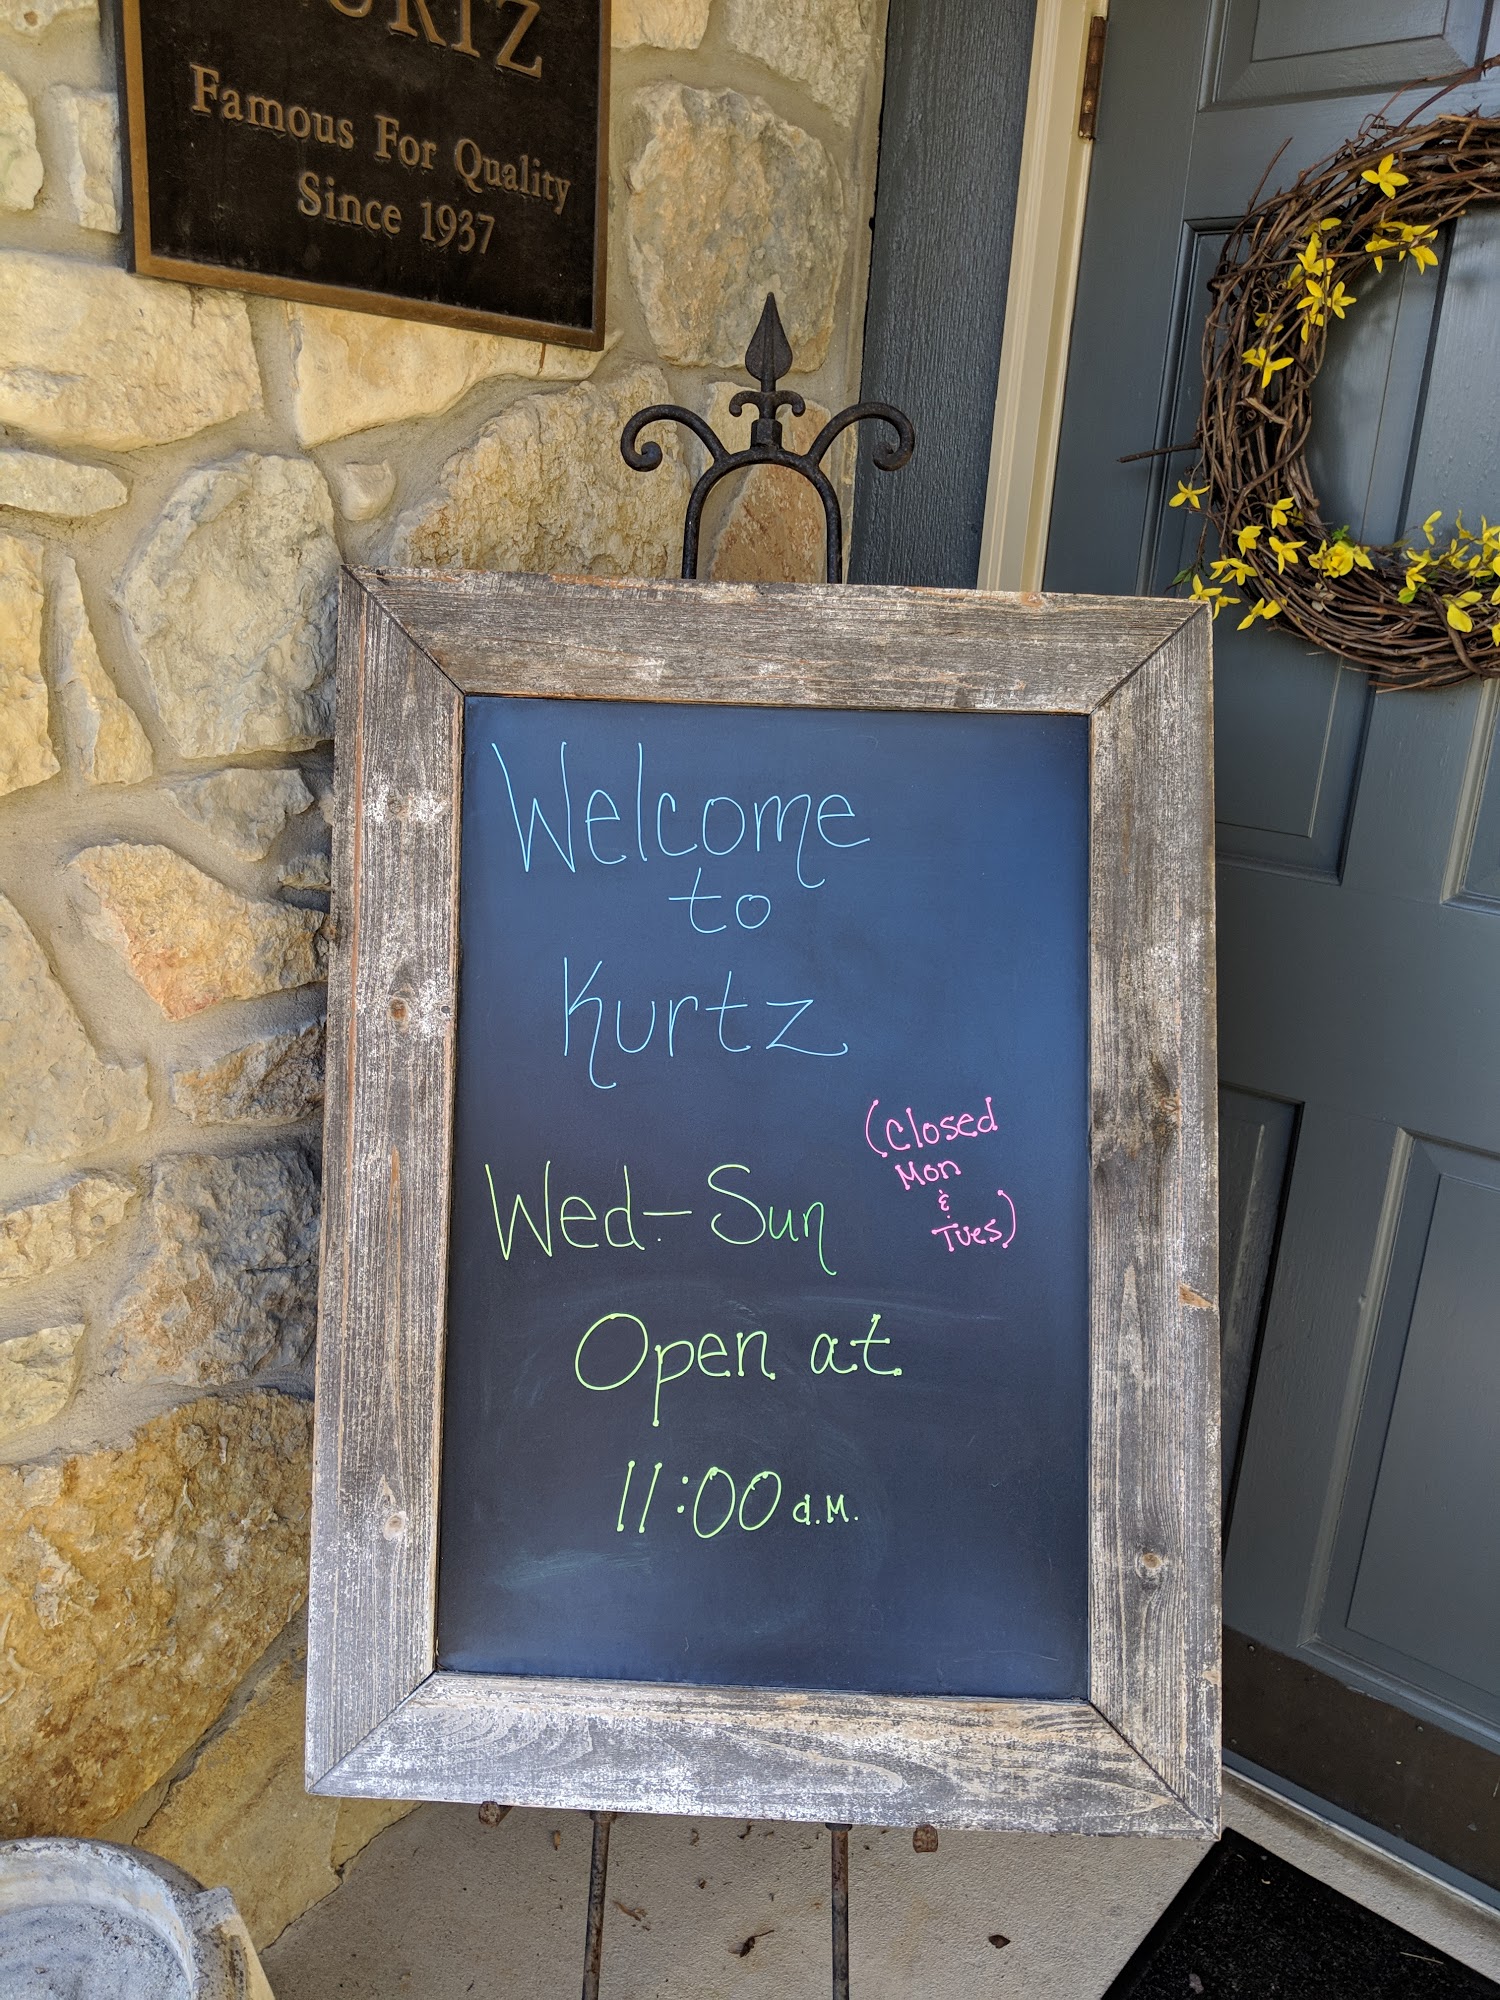 Famous For Quality
Since 1937
Welcome
to
Kurtz
(Closed
Mon
&
Tues)
Wed-Sun
Open at
11:00 a.M.